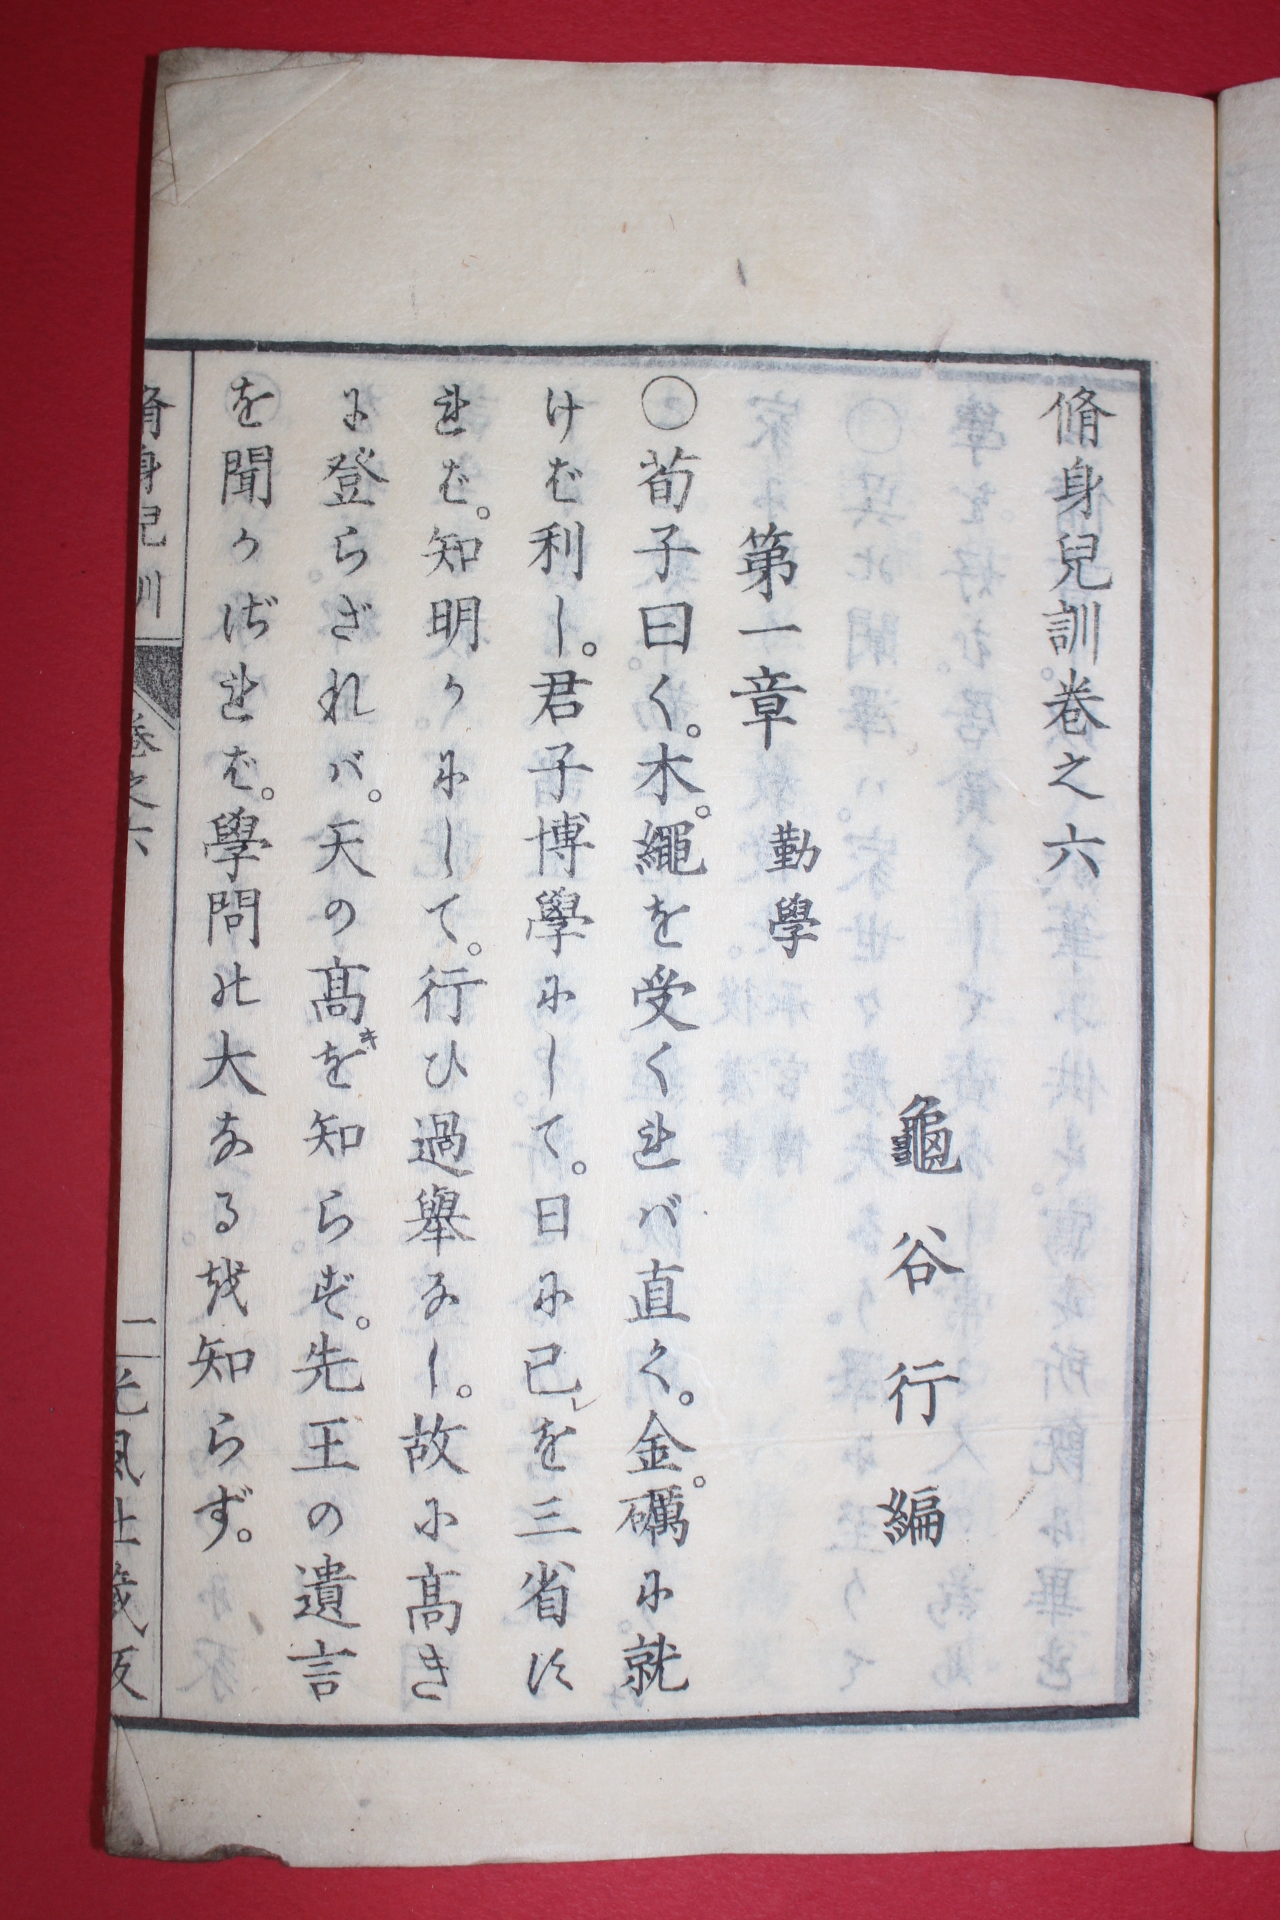 脩身兒訓卷之六
龜谷行編
第一章 勤學
〇荀子曰く。木。繩を受くれバ直く。金。礪に就
けば利し。君子博學にして。日に己レを三省す
れば。知明かにして。行ひ過擧なし。故に高き
に登らざれバ。天の高キを知らず。先王の遺言
を聞かざれば。學問の大なるを知らず。
脩身兒訓 卷之六 一 光風社藏版